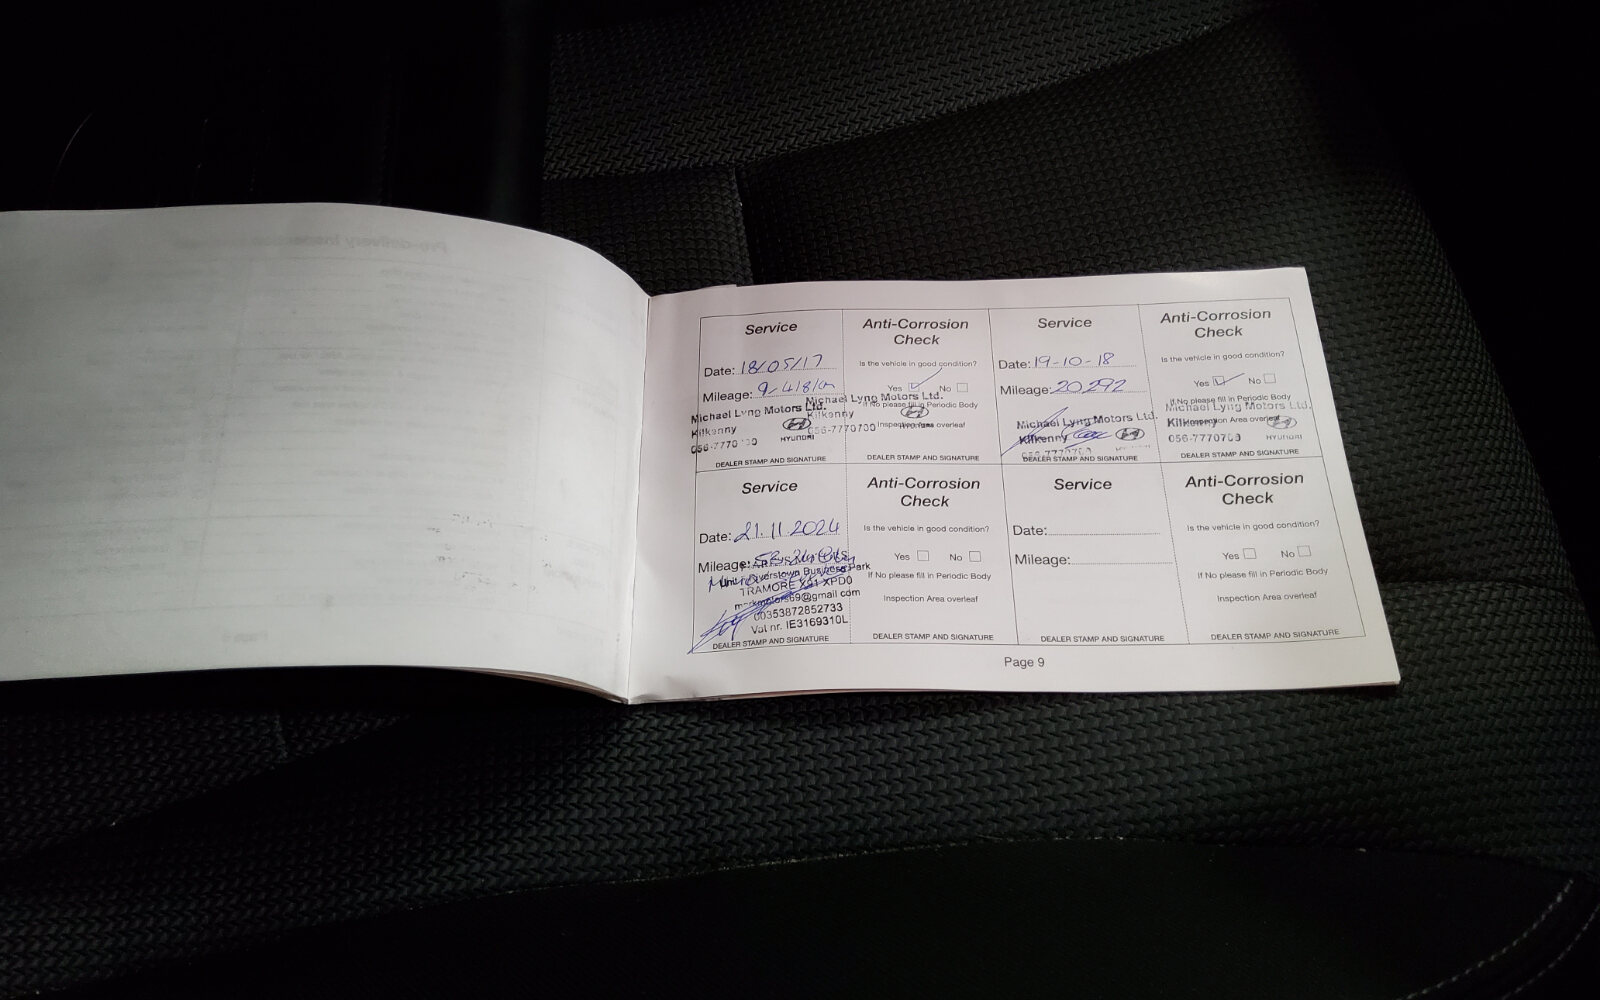 Service
Date: 18/05/17
Mileage: 9,418km
Michael Lyng Motors Ltd.
Kilkenny
HYUNDAI
DEALER STAMP AND SIGNATURE
Anti-Corrosion
Check
Is the vehicle in good condition?
Yes No
If No please fill in Periodic Body
Inspection Area overleaf
Michael Lyng Motors Ltd.
Kilkenny
056-7770700
DEALER STAMP AND SIGNATURE
Service
Date: 19-10-18
Mileage: 20292
Michael Lyng Motors Ltd.
Kilkenny
DEALER STAMP AND SIGNATURE
Anti-Corrosion
Check
Is the vehicle in good condition?
Yes No
If No please fill in Periodic Body
Michael Lyng Motors Ltd.
Kilkenny
056-7770700
HYUNDAI
DEALER STAMP AND SIGNATURE
Service
Date: 21.11.2024
Mileage:
Riverstown Business Park
TRAMORE X91 XPD0
00353872852733
Vat nr. IE3169310L
DEALER STAMP AND SIGNATURE
Anti-Corrosion
Check
Is the vehicle in good condition?
Yes No
If No please fill in Periodic Body
Inspection Area overleaf
DEALER STAMP AND SIGNATURE
Service
Date:
Mileage:
DEALER STAMP AND SIGNATURE
Anti-Corrosion
Check
Is the vehicle in good condition?
Yes No
If No please fill in Periodic Body
Inspection Area overleaf
DEALER STAMP AND SIGNATURE
Page 9